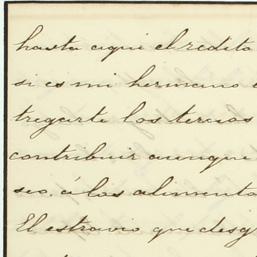 hasta aqui el redito
si es mi hermano
tregarte los tercios
contribuir aunque
sea. á los alimento
El estravio que desg